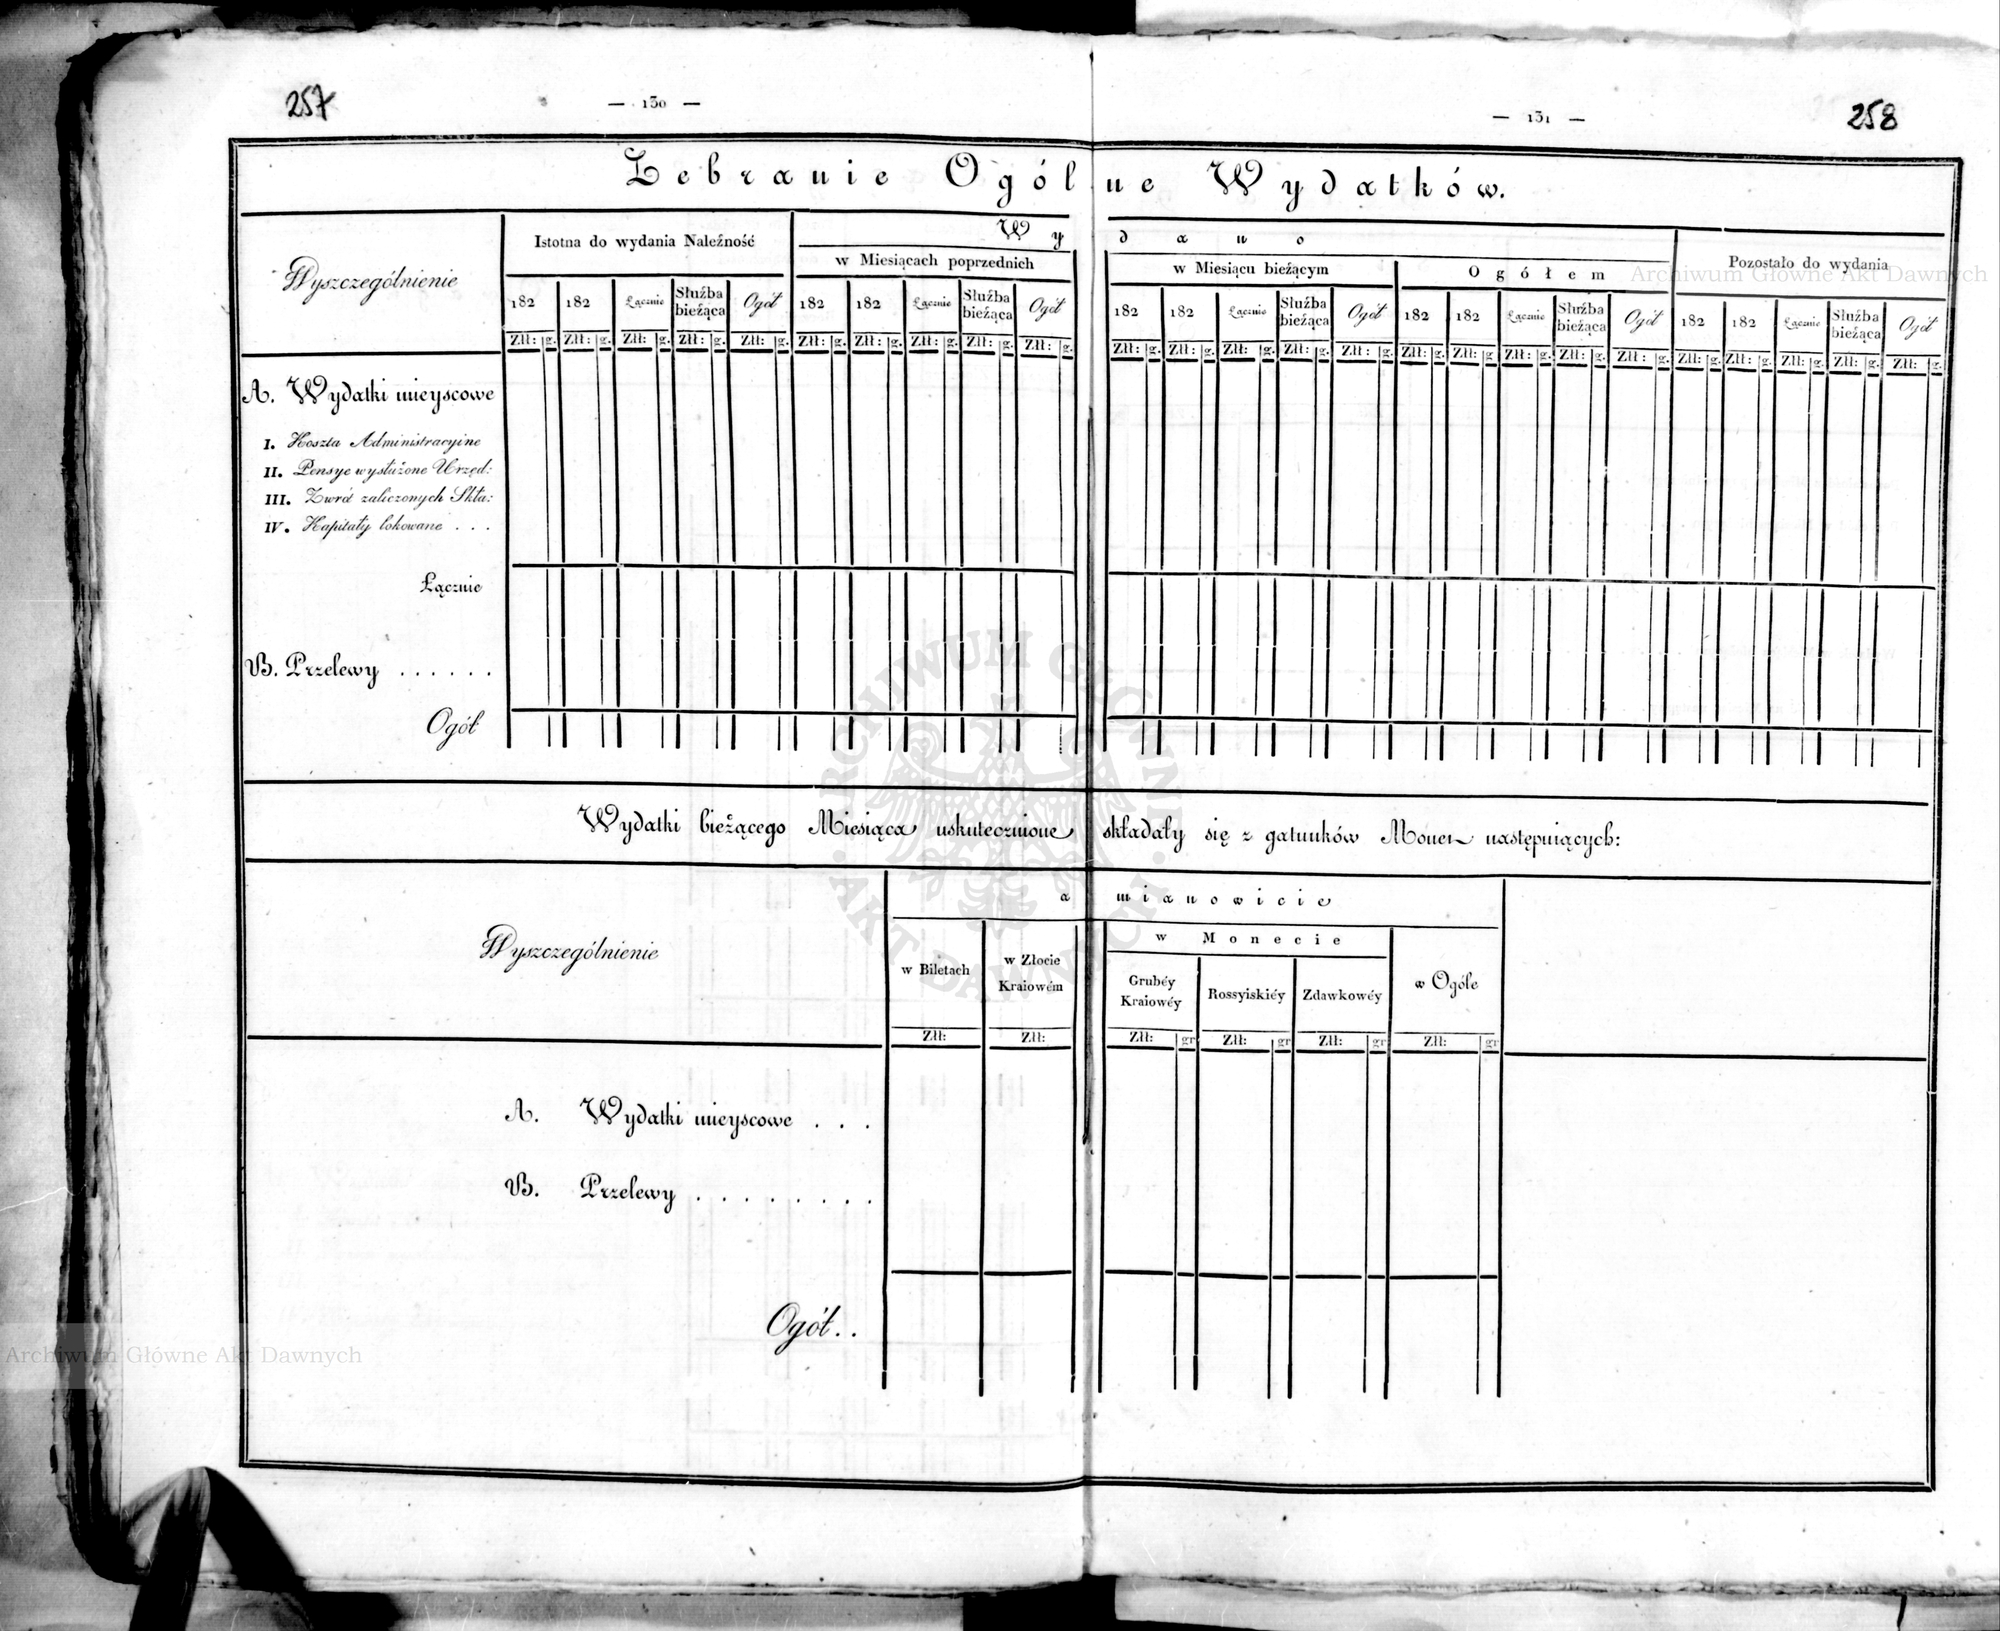 257
— 130 —
— 131 —
258
Zebranie Ogólne Wydatków.
Wyszczególnienie
Istotna do wydania Należność
Wydano
w Miesiącach poprzednich
w Miesiącu bieżącym
Ogółem
Pozostało do wydania
182 182 Łącznie Służba bieżąca Ogół 182 182 Łącznie Służba bieżąca Ogół 182 182 Łącznie Służba bieżąca Ogół 182 182 Łącznie Służba bieżąca Ogół 182 182 Łącznie Służba bieżąca Ogół
Złł: g. Złł: g. Złł: g. Złł: g. Złł: g. Złł: g. Złł: g. Złł: g. Złł: g. Złł: g. Złł: g. Złł: g. Złł: g. Złł: g. Złł: g. Złł: g. Złł: g. Złł: g. Złł: g. Złł: g. Złł: g. Złł: g. Złł: g. Złł: g. Złł: g.
A. Wydatki mieyscowe
I. Koszta Administracyine
II. Pensye wysłużone Urzęd:
III. Zwrót zaliczonych Skła:
IV. Kapitały lokowane . . .
Łącznie
B. Przelewy . . . . . .
Ogół
Wydatki bieżącego Miesiąca uskutecznione składały się z gatunków Monet następuiących:
Wyszczególnienie
a mianowicie
w Biletach
w Złocie
Kraiowém
w Monecie
Grubéy
Kraiowéy
Rossyiskiéy
Zdawkowéy
w Ogóle
Złł: Złł: Złł: gr Złł: gr Złł: gr Złł: gr
A. Wydatki mieyscowe . . .
B. Przelewy . . . . . . . .
Ogół. .
ARCHIWUM GŁÓWNE
AKT DAWNYCH
Archiwum Główne Akt Dawnych
Archiwum Główne Akt Dawnych